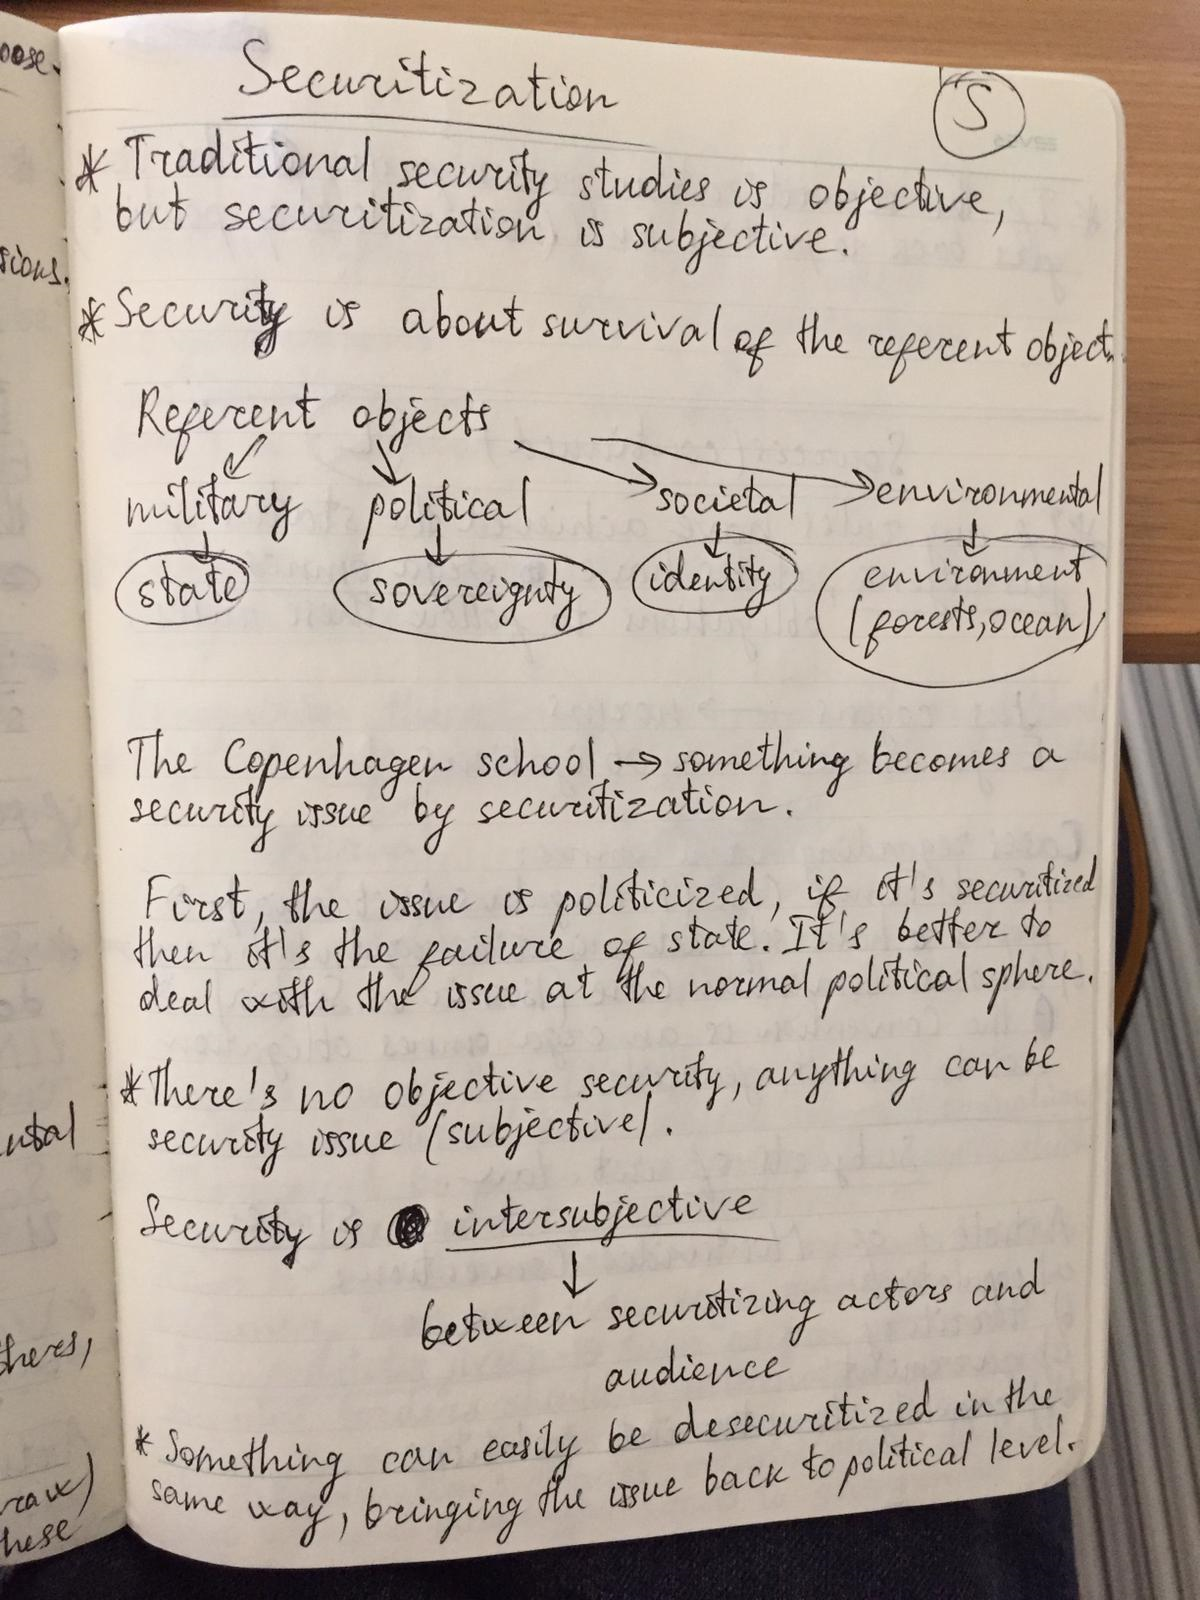 Securitization
S
* Traditional security studies is objective,
but securitization is subjective.
* Security is about survival of the referent object.
Referent objects
military political societal environmental
state sovereignty identity environment
(forests, ocean)
The Copenhagen school → something becomes a
security issue by securitization.
First, the issue is politicized, if it's securitized
then it's the failure of state. It's better to
deal with the issue at the normal political sphere.
* There's no objective security, anything can be
security issue (subjective).
Security is intersubjective
between securitizing actors and
audience
* Something can easily be desecuritized in the
same way, bringing the issue back to political level.
oose.
sions.
ntal
thers,
raw)
hese